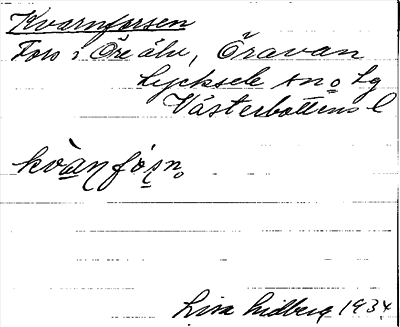 Kvarnforsen
Fors i Öre älv, Öravan
Lycksele sn o Lg
Västerbottens l
kvàn fòsn.
Lisa Lidberg 1934